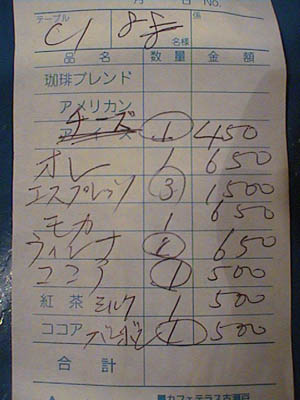 月 日 No.
テーブル 係
C1 名様
品名 数量 金額
珈琲ブレンド
アメリカン
チーズ 1 450
オレ 1 650
エスプレッソ 3 1500
モカ 1 650
ウィンナ 1 650
ココア 1 500
紅茶 ミルク 1 500
ココア 1 500
合計
■カフェテラス古瀬戸